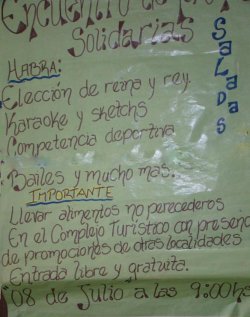 Encuentro de
Solidarias
SaLadas
HABRA:
Elección de reina y rey.
Karaoke y sketchs
Competencia deportiva
Bailes y mucho mas.
IMPORTANTE
LLevar alimentos no perecederos
En el Complejo Turístico con
de promociones de otras localidades
Entrada libre y gratuita.
"08 de Julio a las 9:00hs